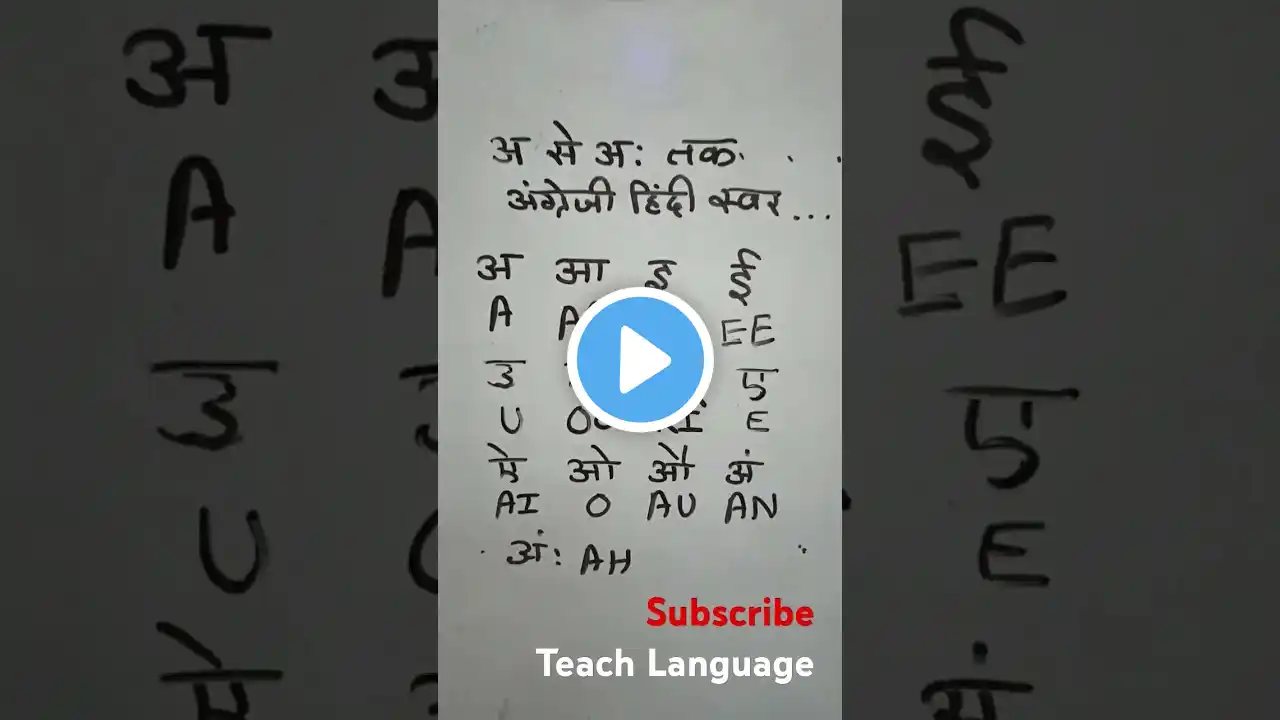 अ से अः तक . .
अंग्रेजी हिंदी स्वर...
अ आ इ ई
A A EE
उ ए
U E
ऐ ओ औ अं
AI O AU AN
अं: AH
Subscribe
Teach Language